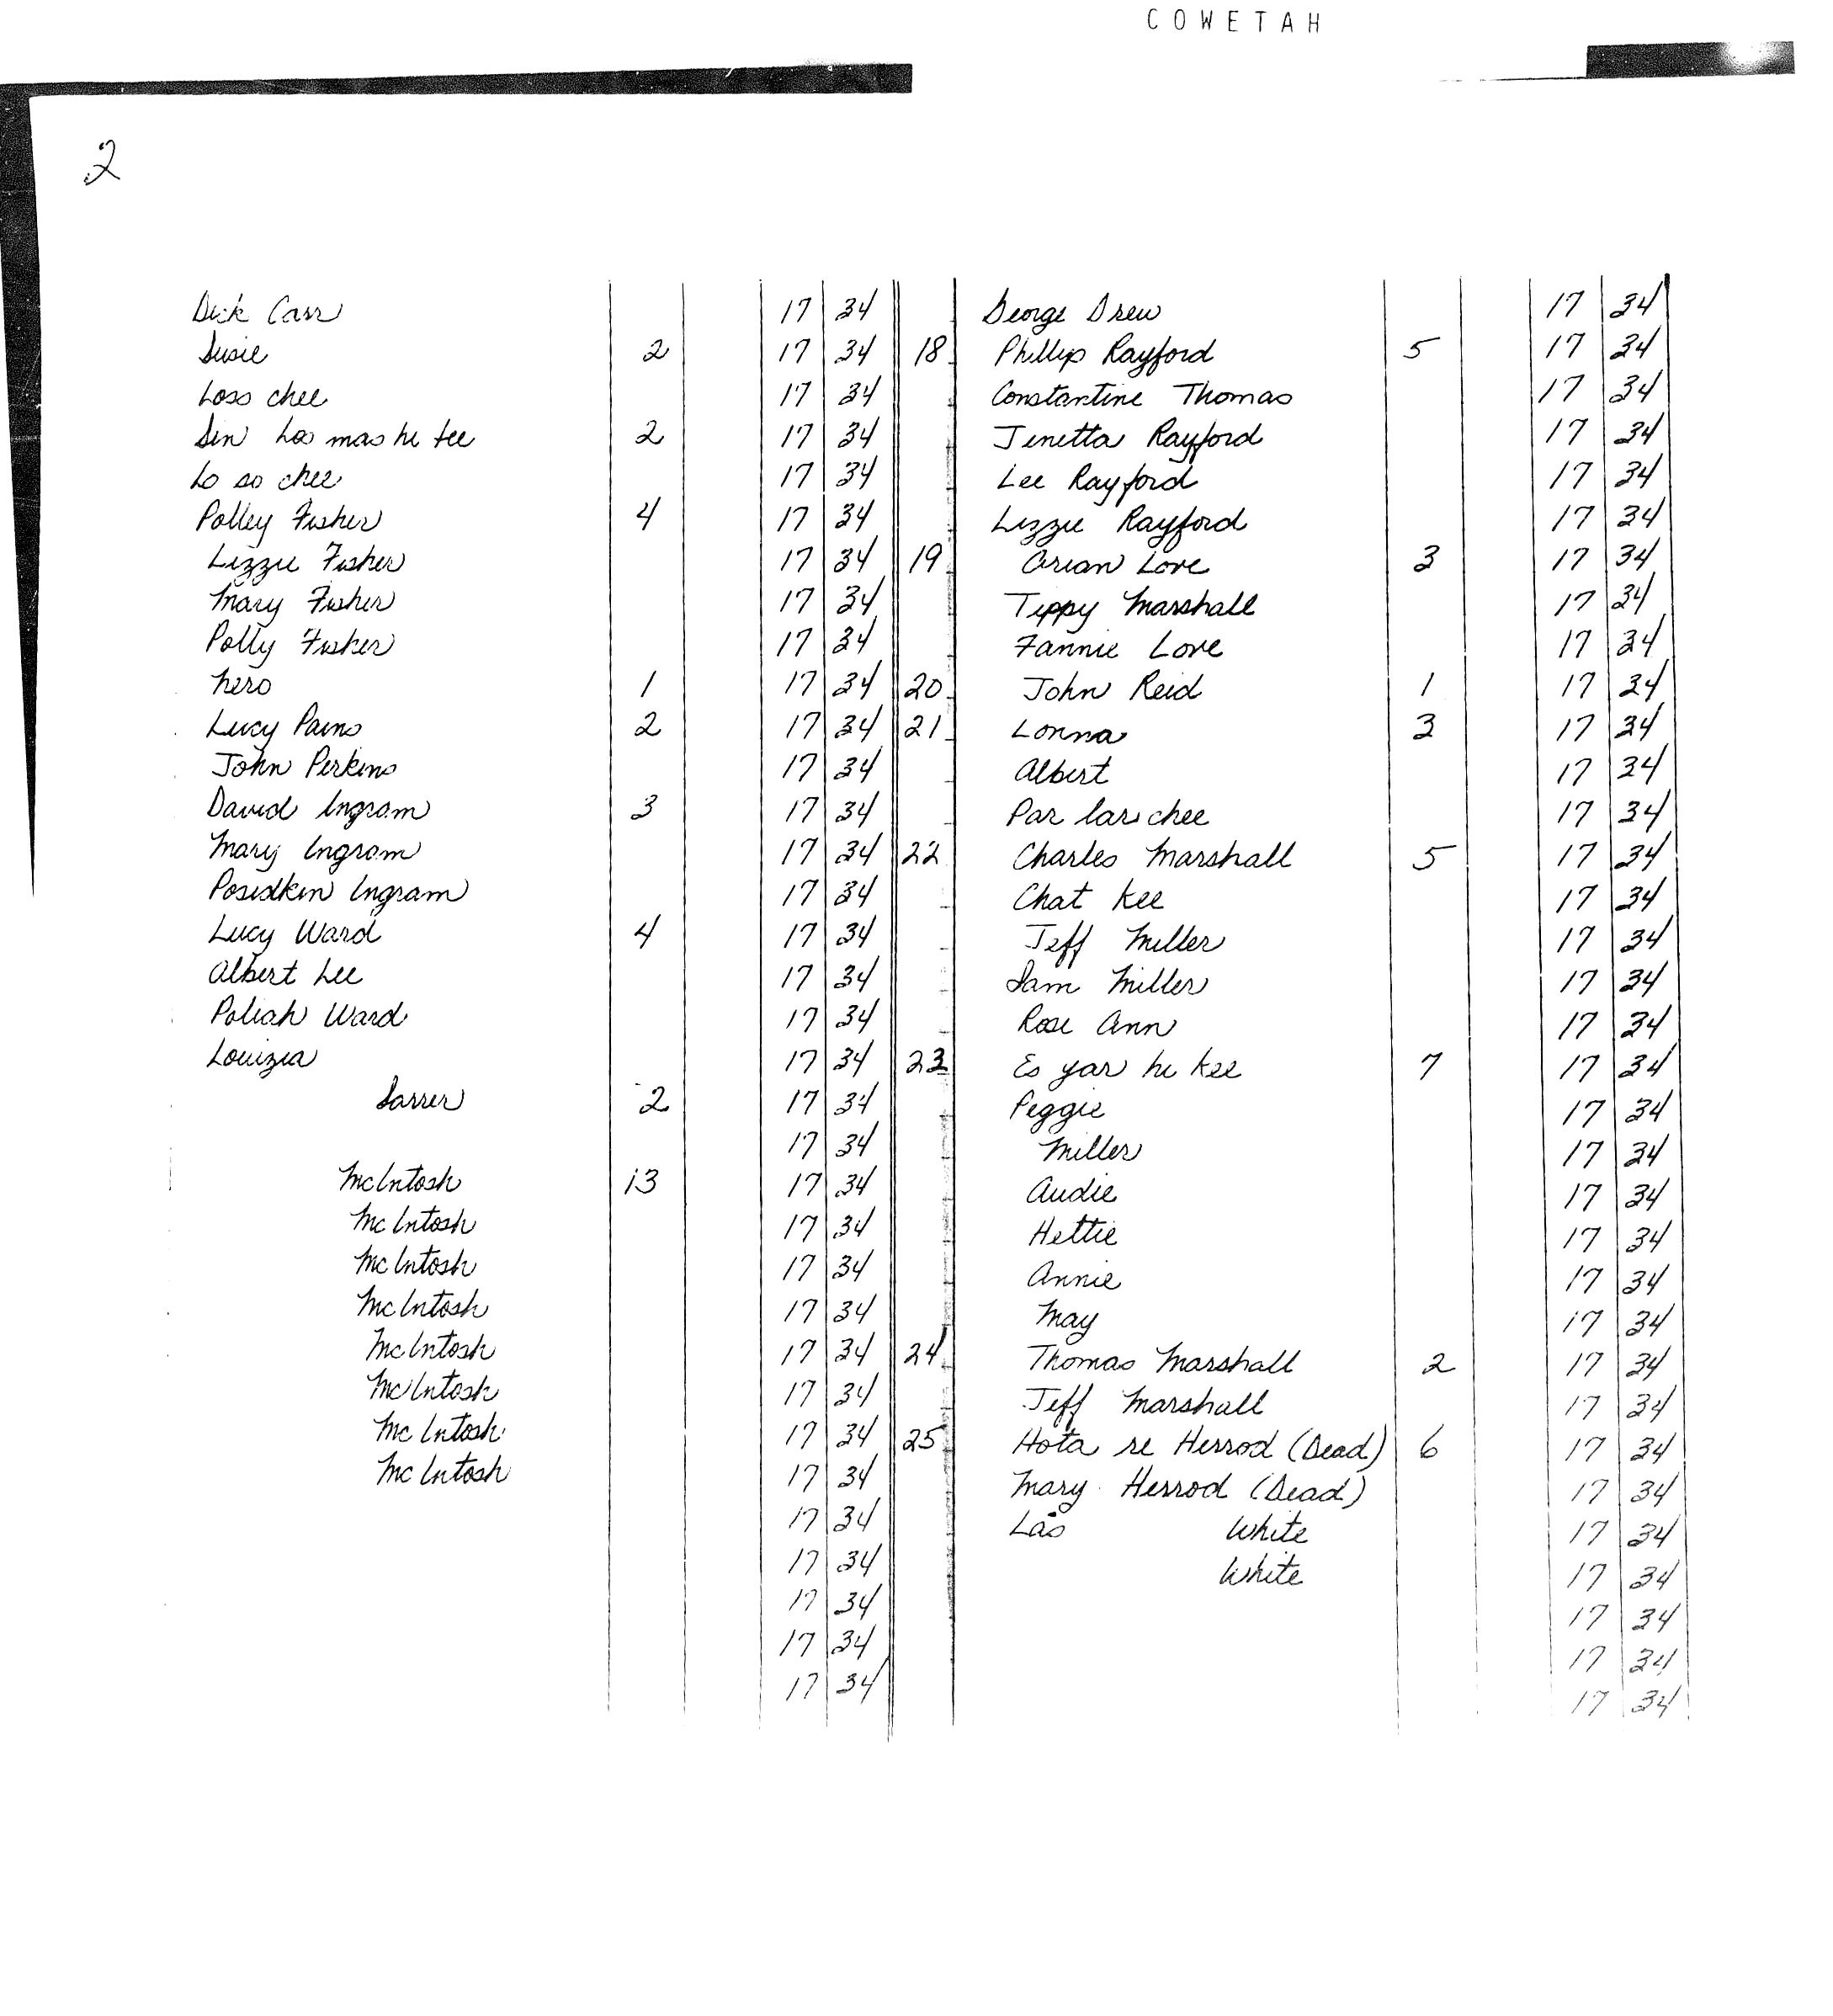 COWETAH
2
Dick Carr 17 34
Susie 2 17 34
Loss chee 17 34
Sin Los mas he tee 2 17 34
Lo so chee 17 34
Polley Fisher 4 17 34
Lizzie Fisher 17 34
Mary Fisher 17 34
Polly Fisher 17 34
Nero 1 17 34
Lucy Pains 2 17 34
John Perkins 17 34
David Ingram 3 17 34
Mary Ingram 17 34
Posidkin Ingram 17 34
Lucy Ward 4 17 34
Albert Lee 17 34
Poliah Ward 17 34
Louizia 17 34
Sarrer 2 17 34
17 34
McIntosh 13 17 34
McIntosh 17 34
McIntosh 17 34
McIntosh 17 34
McIntosh 17 34
McIntosh 17 34
McIntosh 17 34
McIntosh 17 34
17 34
17 34
17 34
17 34
17 34
George Drew 17 34
18 Phillip Rayford 5 17 34
Constantine Thomas 17 34
Jenetta Rayford 17 34
Lee Rayford 17 34
Lizzie Rayford 17 34
19 Arian Love 3 17 34
Tippy Marshall 17 34
Fannie Love 17 34
20 John Reid 1 17 34
21 Lonna 3 17 34
Albert 17 34
Par lar chee 17 34
22 Charles Marshall 5 17 34
Chat kee 17 34
Jeff Miller 17 34
Sam Miller 17 34
Rose Ann 17 34
23 Es yar he kee 7 17 34
Peggie 17 34
Miller 17 34
Audie 17 34
Hettie 17 34
Annie 17 34
May 17 34
24 Thomas Marshall 2 17 34
Jeff Marshall 17 34
25 Hota re Herrod (Dead) 6 17 34
Mary Herrod (Dead) 17 34
Las White 17 34
White 17 34
17 34
17 34
17 34